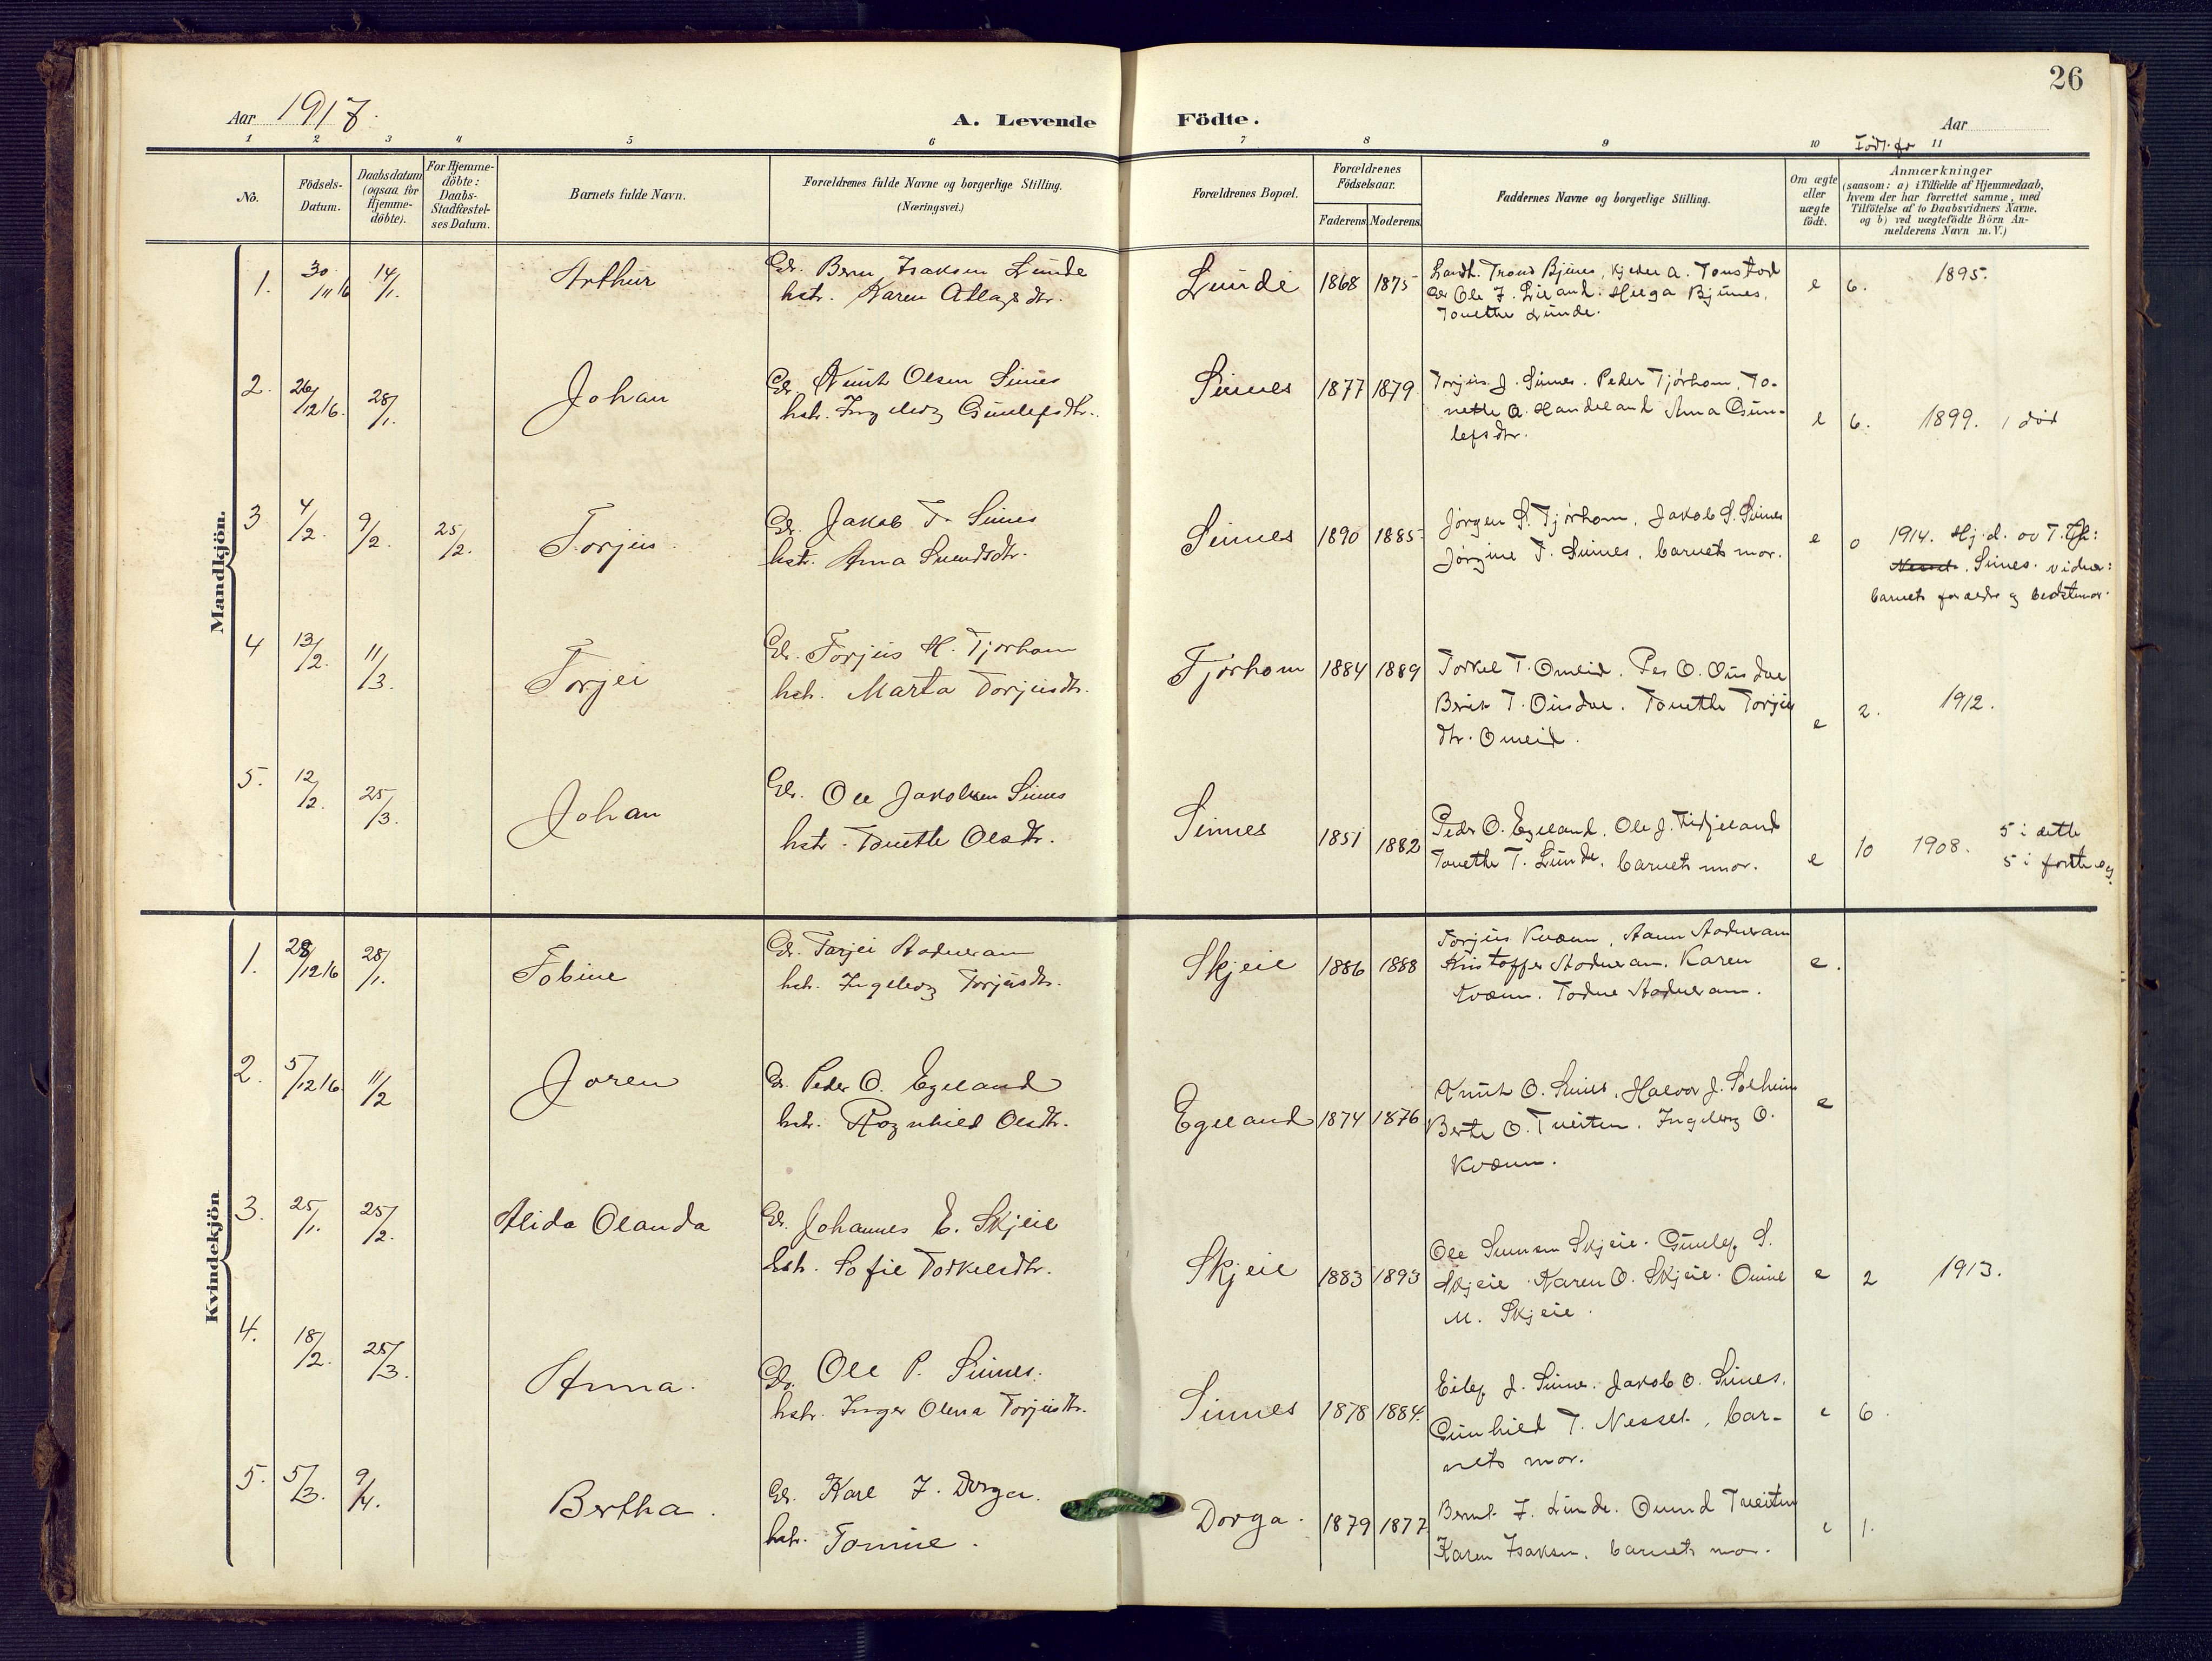 26
Aar 1917.
A. Levende Födte.
Aar
1 2 3 4 5 6 7 8 9 10 11
Födt. før
No.
Födsels-Datum.
Daabsdatum (ogsaa for Hjemme-döbte).
For Hjemme-döbte: Daabs-Stadfæstel-ses Datum.
Barnets fulde Navn.
Forældrenes fulde Navne og borgerlige Stilling.
(Næringsvei.)
Forældrenes Bopæl.
Forældrenes Födselsaar.
Faderens. Moderens.
Faddernes Navne og borgerlige Stilling.
Om ægte eller uægte födt.
Anmærkninger
(saasom: a) i Tilfælde af Hjemmedaab,
hvem der har forrettet samme, med
Tilföielse af to Daabsvidners Navne,
og b) ved uægtefödte Börn An-
melderens Navn m. V.)
Mandkjön.
1. 30/11 16 14/1. Arthur
Gdr. Bern Isaksen Lunde
hstr. Karen Atlagsdtr.
Lunde 1868 1875
Landh. Trond Bjunes, Kjeden A. Tonstad
Gdr Ole I. Lieland. Helga Bjunes,
Tonette Lunde.
e 6. 1895.
2. 26/12 16. 28/1. Johan
Gdr. Knut Olsen Sines
hstr. Ingeborg Gunlefsdtr.
Sinnes 1877 1879
Torjus J. Sinnes. Peder Tjørhom. To-
nette O. Handeland Anna Gun-
lefsdtr.
e 6. 1899. 1 död
3 4/2. 9/2. 25/2. Torjus.
Gdr. Jakob T. Sines
hstr. Anna Svendsdtr.
Sinnes 1890 1885
Jörgen S. Tjörhom. Jakob S. Sinnes
Jörgine T. Sinnes. barnets mor.
e 0 1914. Hj. d. av T.
Sines. vidner:
barnets forældre og bedstemor.
4 13/2. 11/3. Torjei
Gdr. Torjus H. Tjorhom
hstr. Marta Torjusdtr.
Tjorhom 1884 1889
Torkel T. Omeid. Per O. Ousdal
Berit T. Ousdal. Tonette Torjus
dtr. Omeid.
e 2. 1912.
5. 12/2. 25/3. Johan
Gdr. Ole Jakobsen Sines
hstr. Tonette Olsdtr.
Sinnes 1851 1882
Peder O. Egeland. Ole J. Fidjeland
Tonette T. Lunde. barnets mor.
e 10 1908. 5 i dette
5 i første eg.
Kvindekjön
1. 28/12 16 28/1. Tobine
Gdr. Tarjei Aadneram
hstr. Ingeborg Torjusdtr.
Skjeie 1886 1888
Torjus Kvænn, Aann Aadneram
Kristoffer Aadneram. Karen
Kvænn. Todne Aadneram.
e.
2. 5/12 16. 11/2 Joren
Gdr. Peder O. Egeland
hstr. Ragnhild Olsdtr.
Egeland 1874 1876
Knut O. Sines. Halvor J. Solheim
Berte O. Tveiten. Ingeborg O.
Kvænn.
e
3. 25/1. 25/2. Alida Olanda
Gdr. Johannes E. Skjeie
hstr. Sofie Torkelsdtr.
Skjeie 1883 1893
Ole Skjeie. Gunlef S.
Skjeie. Karen O. Skjeie. Omine
M. Skjeie.
e 2 1913.
4. 18/2. 25/3. Anna.
Gdr. Ole P. Sinnes.
hstr. Inger Olena Torjusdtr.
Sinnes 1878 1884.
Eilef J. Sines. Jakob O. Sines,
Gunhild T. Nesset, bar-
nets mor.
e 6.
5. 5/3. 9/4. Bertha.
Gdr. Karl I. Dorga.
hstr. Tomine.
Dorga. 1879 1877
Bernt I. Lunde. Omund Tveiten
Karen Isaksen. barnets mor.
e 1.